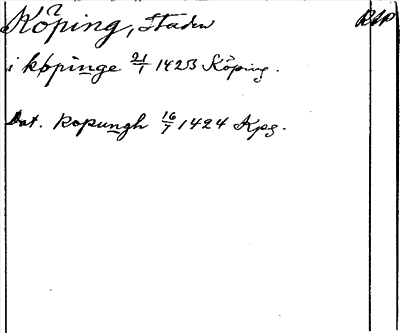 Köping, Staden RAP
i køpinge 21/1 1423 Köping.
Dat. kopungh 16/7 1424 Kpg.